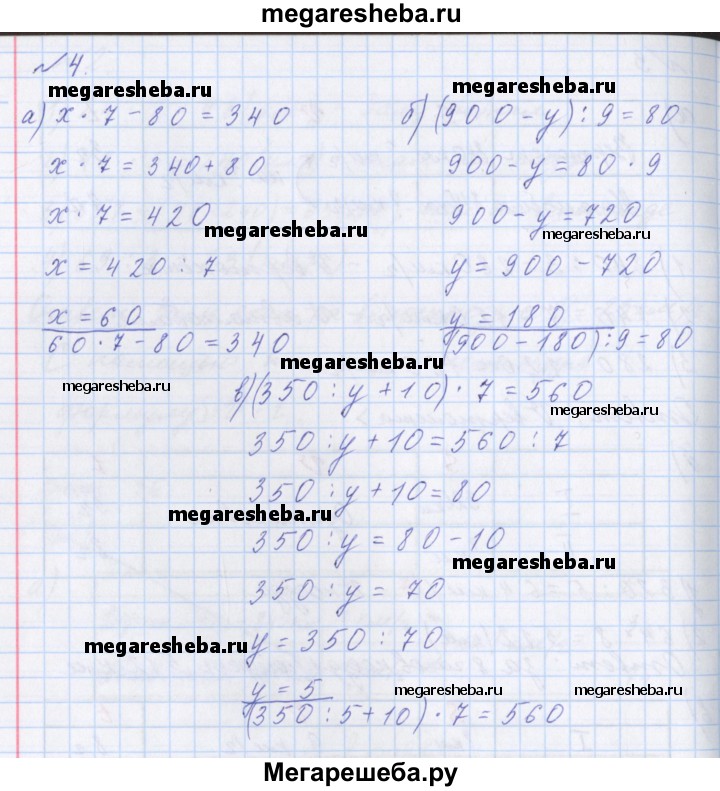 megaresheba.ru
№ 4.
megaresheba.ru
а) x · 7 - 80 = 340
x · 7 = 340 + 80
x · 7 = 420
megaresheba.ru
x = 420 : 7
x = 60
60 · 7 - 80 = 340
megaresheba.ru
б) (900 - y) : 9 = 80
900 - y = 80 · 9
900 - y = 720
megaresheba.ru
y = 900 - 720
y = 180
(900 - 180) : 9 = 80
megaresheba.ru
megaresheba.ru
в) (350 : y + 10) · 7 = 560
megaresheba.ru
350 : y + 10 = 560 : 7
350 : y + 10 = 80
megaresheba.ru
350 : y = 80 - 10
megaresheba.ru
350 : y = 70
megaresheba.ru
y = 350 : 70
y = 5
megaresheba.ru
megaresheba.ru
(350 : 5 + 10) · 7 = 560
Мегарешеба.ру